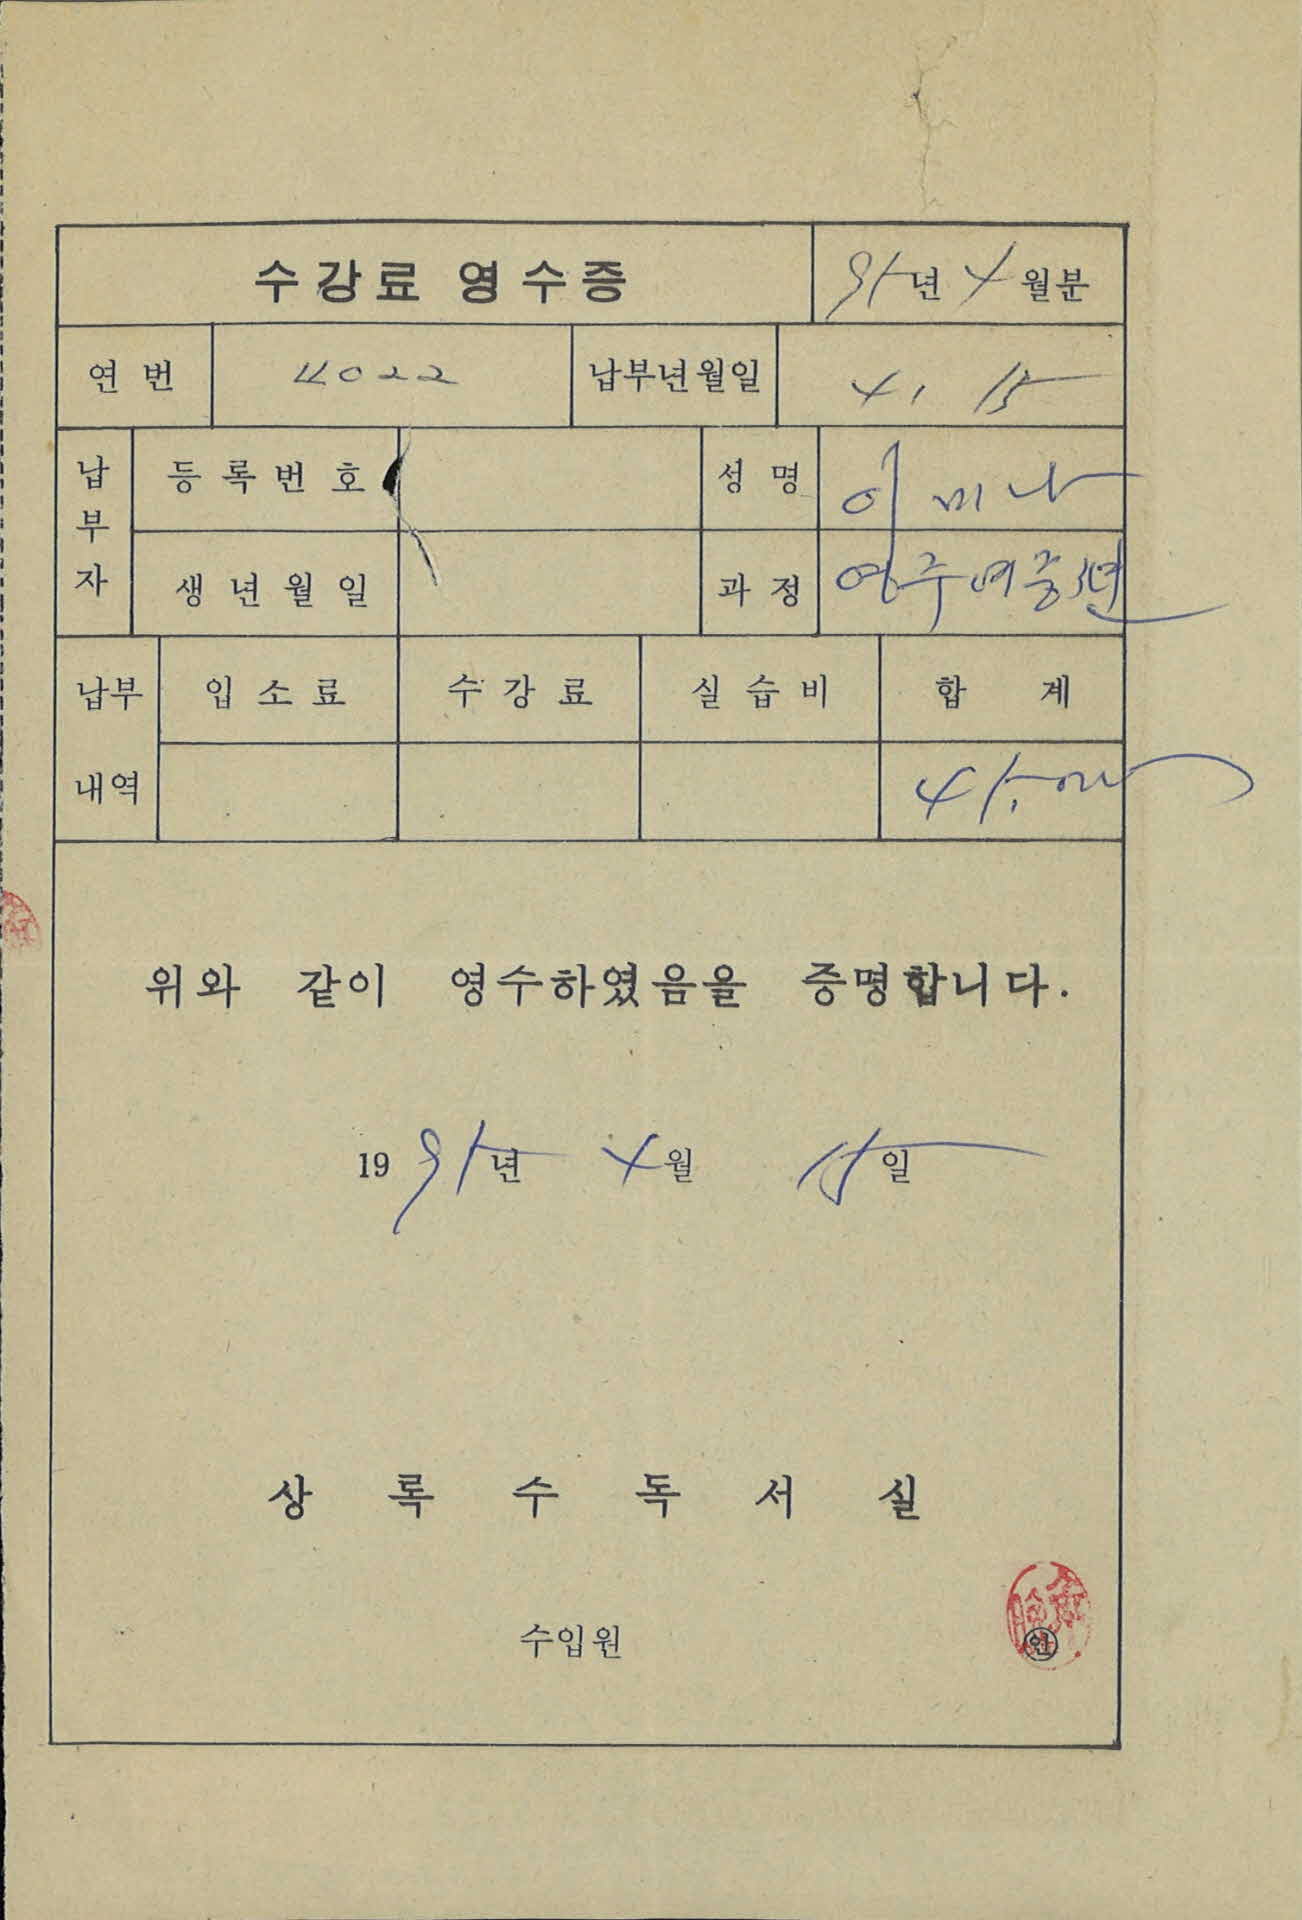 수강료 영수증 95년 4월분
연 번 4022 납부년월일 4. 15
납부자 등록번호 성명 이미나
생년월일 과정 영주여중3년
납부내역 입소료 수강료 실습비 합계
45,000
위와 같이 영수하였음을 증명합니다.
1995년 4월 15일
상록수독서실
수입원 ㊞